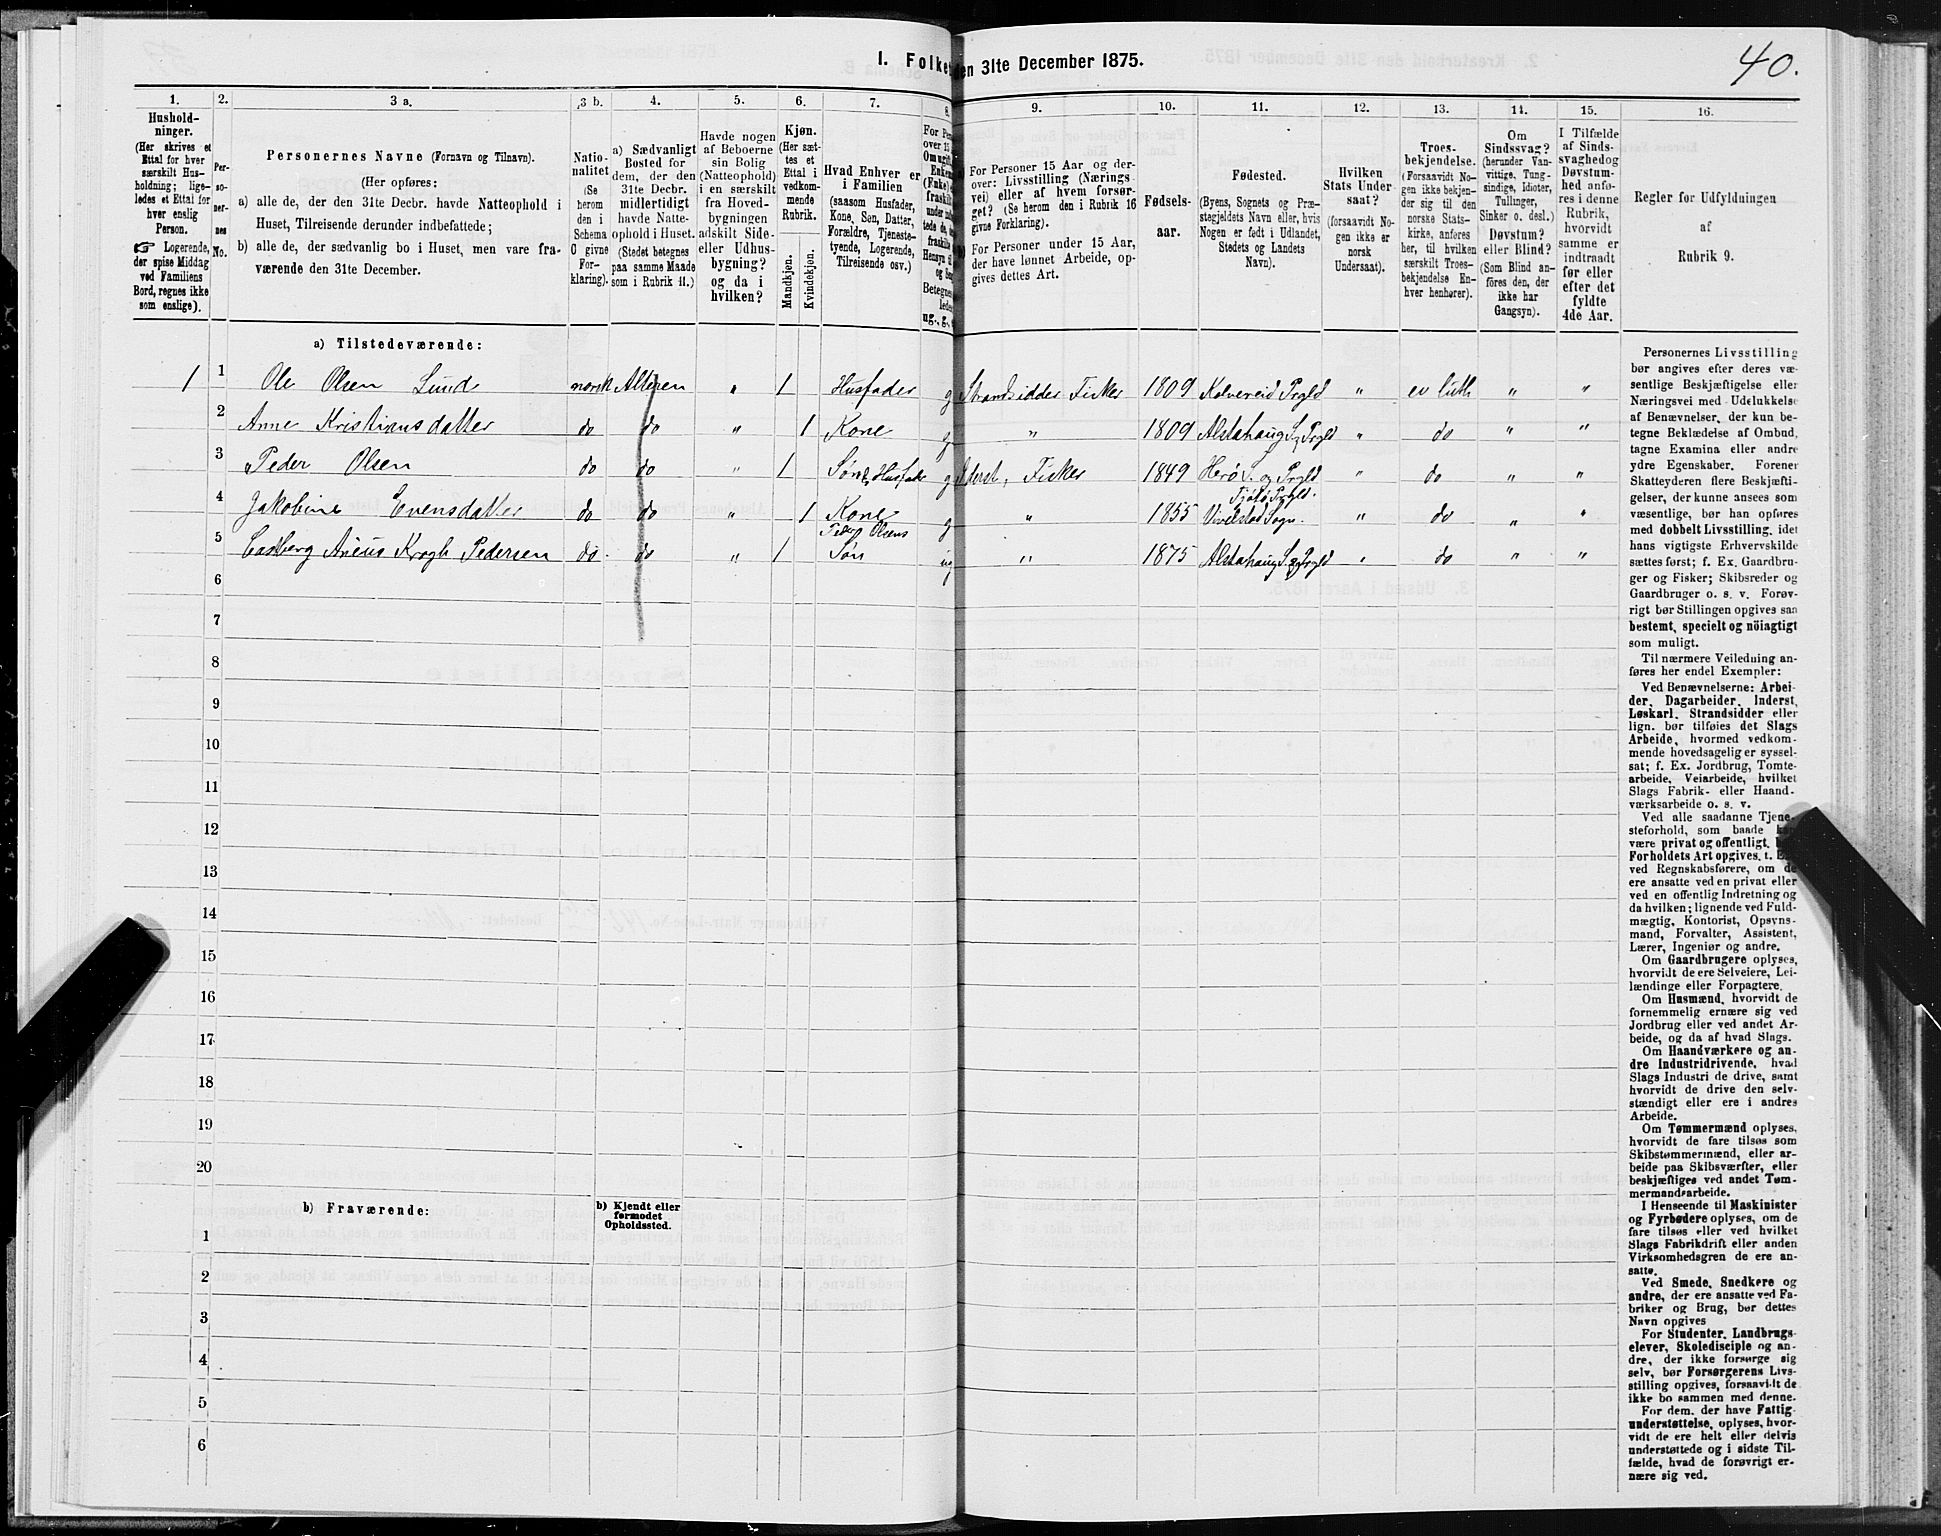 40.
I. Folket
den 31te December 1875.
1. 2. 3 a. 3 b. 4. 5. 6. 7. 8. 9. 10. 11. 12. 13. 14. 15. 16.
Hushold-
ninger.
(Her skrives et
Ettal for hver
særskilt Hus-
holdning; lige-
ledes et Ettal for
hver enslig
Person.
☞ Logerende,
der spise Middag
ved Familiens
Bord, regnes ikke
som enslige).
Per-
so-
ner-
nes
No.
Personernes Navne (Fornavn og Tilnavn).
(Her opføres:
a) alle de, der den 31te Decbr. havde Natteophold i
Huset, Tilreisende derunder indbefattede;
b) alle de, der sædvanlig bo i Huset, men vare fra-
værende den 31te December.
Natio-
nalitet
(Se
herom
den i
Schema
C givne
For-
klaring).
a) Sædvanligt
Bosted for
dem, der den
31te Decbr.
midlertidigt
havde Natte-
ophold i Huset.
(Stedet betegnes
paa samme Maade
som i Rubrik 11.)
Havde nogen
af Beboerne
sin Bolig
(Natteophold)
i en særskilt
fra Hoved-
bygningen
adskilt Side-
eller Udhus-
bygning?
og da i
hvilken?
Kjøn.
(Her sæt-
tes et
Ettal i
vedkom-
mende
Rubrik.
Mandkjøn.
Kvindekjøn.
Hvad Enhver er
i Familien
(saasom Husfader,
Kone, Søn, Datter,
Forældre, Tjeneste-
tyende, Logerende,
Tilreisende osv.)
a) For Personer 15 Aar og der-
over: Livsstilling (Nærings
vei) eller af hvem forsør-
get? (Se herom den i Rubrik 16
givne Forklaring).
b) For Personer under 15 Aar,
der have lønnet Arbeide, op-
gives dettes Art.
Fødsels-
aar.
Fødested.
(Byens, Sognets og Præ-
stegjeldets Navn eller, hvis
Nogen er født i Udlandet,
Stedets og Landets
Navn).
Hvilken
Stats Under-
saat?
(forsaavidt No-
gen ikke er
norsk
Undersaat).
Troes-
bekjendelse.
(Forsaavidt No-
gen ikke bekjen-
der sig til den
norske Stats-
kirke, anføres
her, til hvilken
særskilt Troes-
bekjendelse En-
hver henhører).
Om
Sindssvag?
(herunder Van-
vittige, Tung-
sindige, Idioter,
Tullinger,
Sinker o. desl.)
Døvstum?
eller Blind?
(Som Blind an-
føres den, der
ikke har
Gangsyn).
I Tilfælde
af Sinds-
svaghed og
Døvstum-
hed anfø-
res i denne
Rubrik,
hvorvidt
samme er
indtraadt
før eller
efter det
fyldte
4de Aar.
Regler for Udfyldningen
af
Rubrik 9.
a) Tilstedeværende:
1 1 Ole Olsen Lund norsk Alteren " 1 Husfader g Strandsidder Fisker 1809 Kolvereid Prgld " ev luth " "
2 Anne Kristiansdatter do do " 1 Kone g " 1809 Alstahaug S. Prgld " do " "
3 Peder Olsen do do " 1 Søn, Husfader g Inderst, Fisker 1849 Herø S. og Prgld " do " "
4 Jakobine Evensdatter do do " 1 Kone Peder Olsens g " 1855 Tjøtø Prgld. Vivelstad Sogn. " do " "
5 Castberg Areus Krogh Pedersen do do " 1 Søn ug " 1875 Alstahaug S. og Prgld " do " "
6
7
8
9
10
11
12
13
14
15
16
17
18
19
20
b) Fraværende:
b) Kjendt eller
formodet
Opholdssted.
1
2
3
4
5
6
Personernes Livsstilling
bør angives efter deres væ-
sentlige Beskjæftigelse eller
Næringsvei med Udelukkelse
af Benævnelser, der kun be-
tegne Beklædelse af Ombud,
tagne Examina eller andre
ydre Egenskaber. Forener
Skatteyderen flere Beskjæfti-
gelser, der kunne ansees som
væsentlige, bør han opføres
med dobbelt Livsstilling, idet
hans vigtigste Erhvervskilde
sættes først; f. Ex. Gaardbru-
ger og Fisker; Skibsreder og
Gaardbruger o. s. v. Forøv-
rigt bør Stillingen opgives saa
bestemt, specielt og nöiagtigt
som muligt.
Til nærmere Veiledning an-
føres her endel Exempler:
Ved Benævnelserne: Arbei-
der, Dagarbeider, Inderst,
Løskarl, Strandsidder eller
lign. bør tilføies det Slags
Arbeide, hvormed vedkom-
mende hovedsagelig er syssel-
sat; f. Ex. Jordbrug, Tomte-
arbeide, Veiarbeide, hvilket
Slags Fabrik- eller Haand-
værksarbeide o. s. v.
Ved alle saadanne Tjene-
steforhold, som baade kan
være privat og offentligt,
Forholdets Art opgives, t. Ex.
ved Regnskabsførere, om de
ere ansatte ved en privat eller
ved en offentlig Indretning og
da hvilken; lignende ved Fuld-
mægtig, Kontorist, Opsyns-
mand, Forvalter, Assistent,
Lærer, Ingeniør og andre.
Om Gaardbrugere oplyses,
hvorvidt de ere Selveiere, Lei-
lændinge eller Forpagtere.
Om Husmænd, hvorvidt de
fornemmelig ernære sig ved
Jordbrug eller ved andet Ar-
beide, og da af hvad Slags.
Om Haandværkere og an-
dre Industridrivende, hvad
Slags Industri de drive, samt
hvorvidt de drive den selv-
stændigt eller ere i andres
Arbeide.
Om Tømmermænd oplyses,
hvorvidt de fare tilsøs som
Skibstømmermænd, eller ar-
beide paa Skibsværfter, eller
beskjæftiges ved andet Tøm-
mermandsarbeide.
I Henseende til Maskinister
og Fyrbødere oplyses, om de
fare tilsøs eller ved hvilket
Slags Fabrikdrift eller anden
Virksomhedsgren de ere an-
satte.
Ved Smede, Snedkere og
andre, der ere ansatte ved Fa-
briker og Brug, bør dettes
Navn opgives
For Studenter, Landbrugs-
elever, Skoledisciple og an-
dre, der ikke forsørge sig
selv, bør Forsørgerens Livs-
stilling opgives, forsaavidt de
ikke bo sammen med denne.
For dem, der have Fattig-
understøttelse, oplyses, hvor-
vidt de ere helt eller delvis
understøttede og i sidste Til-
fælde, hvad de forøvrigt er-
nære sig ved.